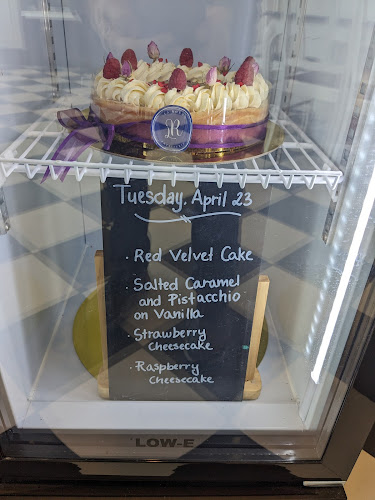 R
Tuesday, April 23
· Red Velvet Cake
· Salted Caramel
and Pistacchio
on Vanilla
· Strawberry
Cheesecake
· Raspberry
Cheesecake
LOW-E